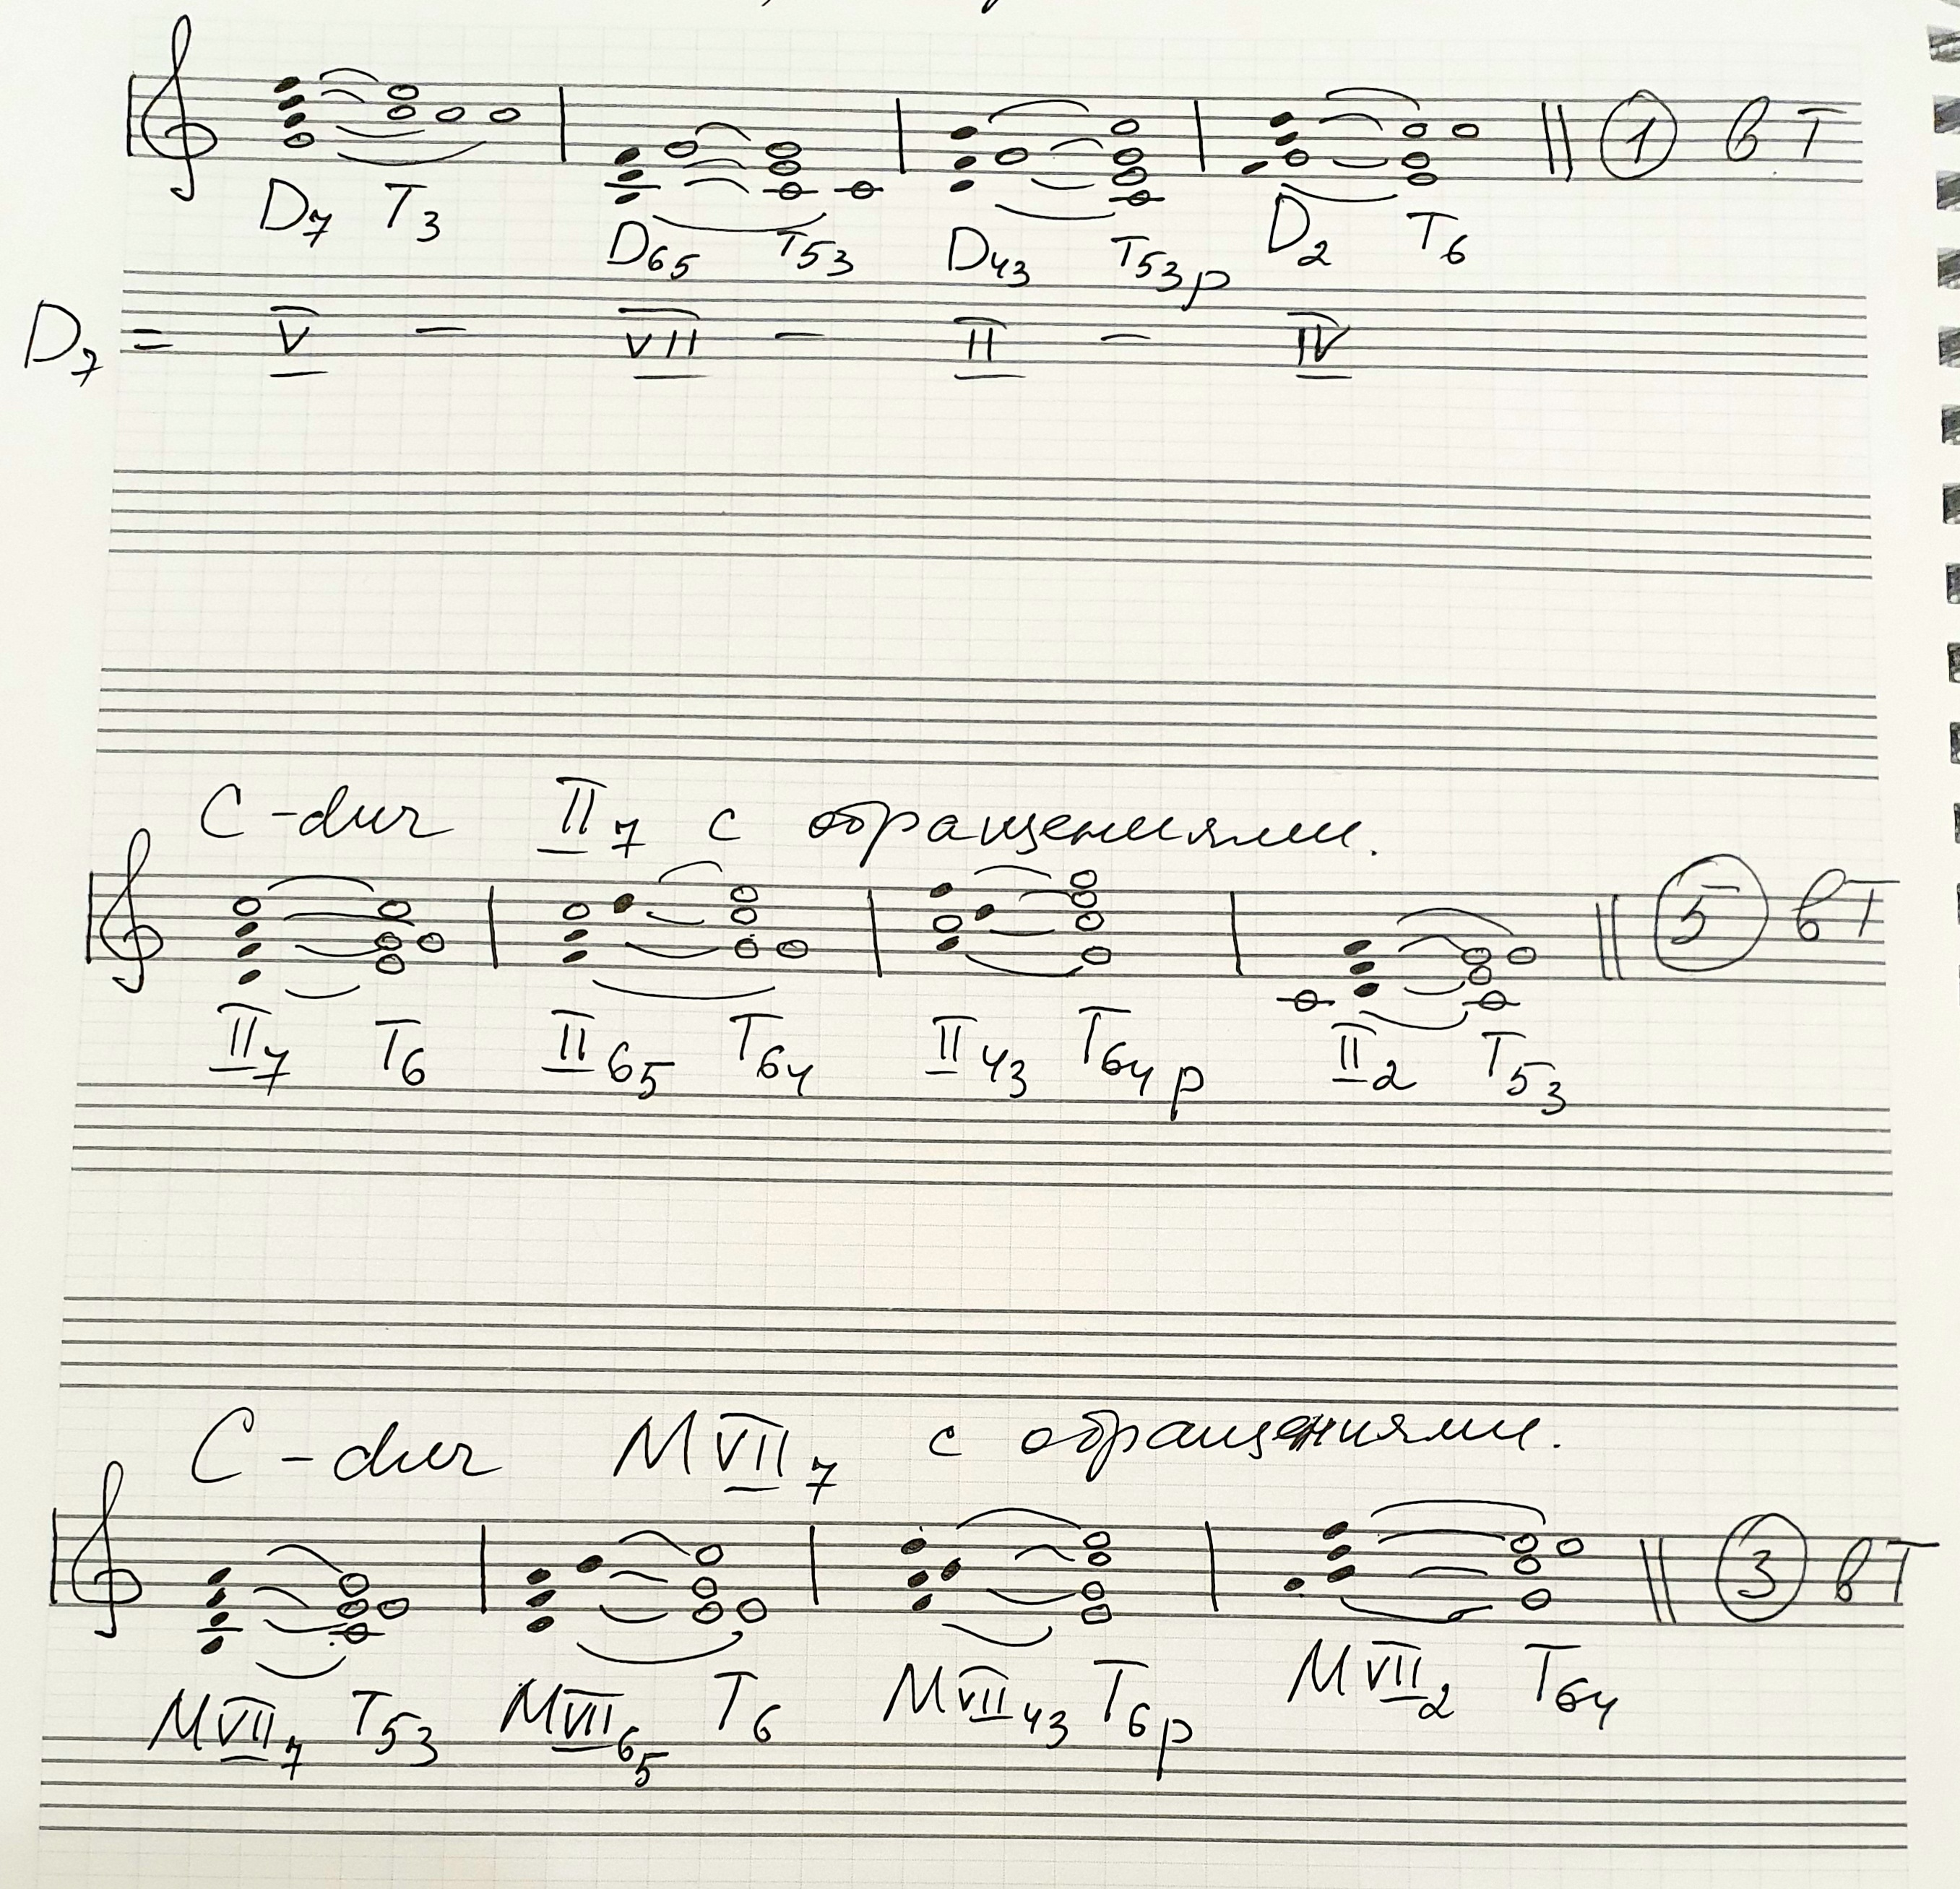 D7 T3 D65 T53 D43 T53p D2 T6 ① в T
D7 = V - VII - II - IV
C-dur II7 с обращениями.
5 в T
II7 T6 II65 T64 II43 T64p II2 T53
C-dur MVII7 с обращениями.
③ в T
MVII7 T53 MVII65 T6 MVII43 T6p MVII2 T64